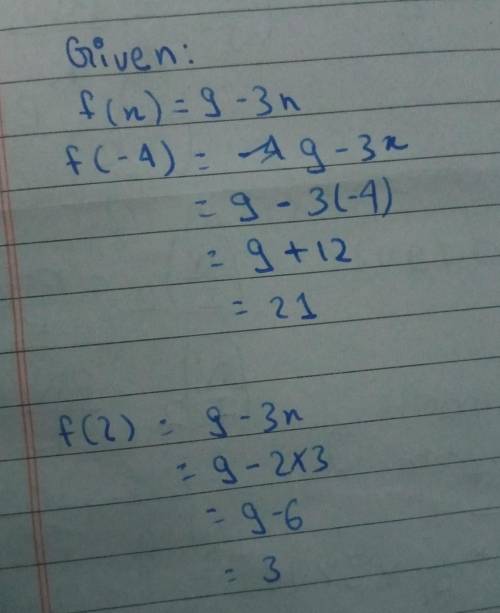 Given:
f(x) = 9 - 3x
f(-4) = 9 - 3x
= 9 - 3(-4)
= 9 + 12
= 21
f(2) = 9 - 3x
= 9 - 2×3
= 9 - 6
= 3